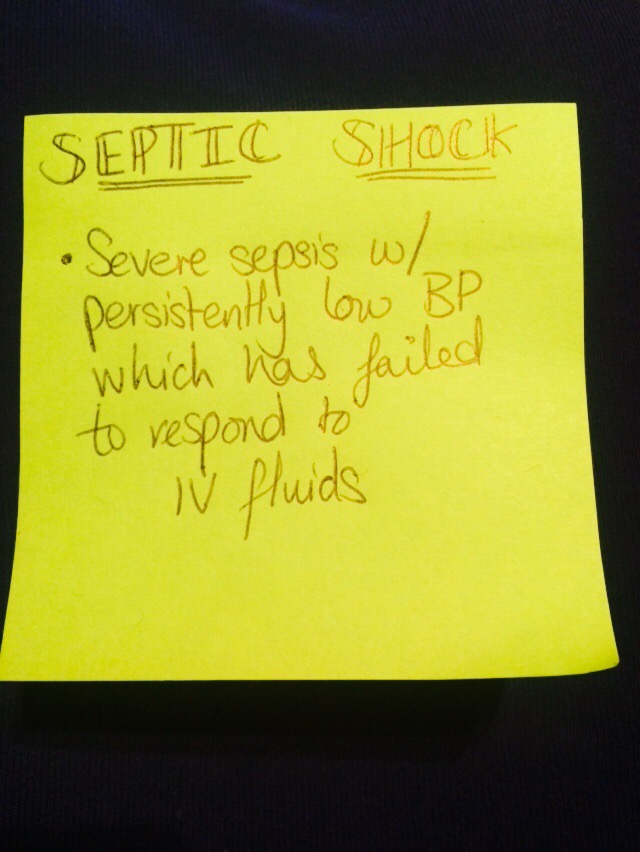 SEPTIC SHOCK
• Severe sepsis w/
persistently low BP
which has failed
to respond to
IV fluids